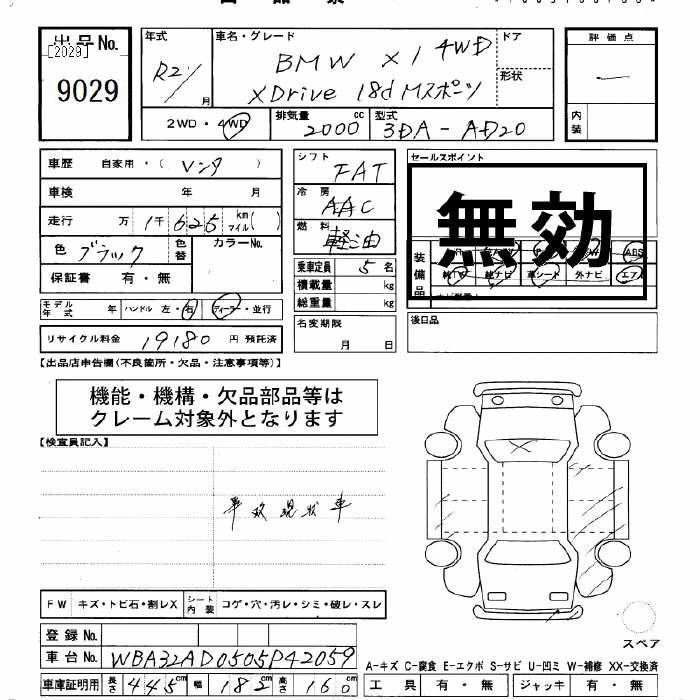 出品No.
[2029]
9029
年式
R2/
月
車名・グレード
BMW X1 4WD
XDrive 18d Mスポーツ
ドア
形状
評価点
内装
2WD・4WD
排気量
2000
cc
型式
3DA-AD20
車歴 自家用・( レンタ )
車検 年 月
走行 万 1千625 km マイル( )
色 ブラック
色替
カラーNo.
保証書 有・無
モデル年式 年
ハンドル 左・右
ディーラー・並行
リサイクル料金 19180 円 預託済
シフト
FAT
冷房
AAC
燃料
軽油
乗車定員 5 名
積載量 kg
総重量 kg
名変期限
月 日
セールスポイント
無効
装備品
ABS
革シート 外ナビ エアB
後日品
【出品店申告欄(不良箇所・欠品・注意事項等)】
機能・機構・欠品部品等は
クレーム対象外となります
【検査員記入】
事故現状車
FW キズ・トビ石・割レX
シート内装 コゲ・穴・汚レ・シミ・破レ・スレ
登録No.
車台No. WBA32AD0505P42059
車庫証明用 長さ 445cm 幅 182cm 高さ 160cm
スペア
A-キズ C-腐食 E-エクボ S-サビ U-凹ミ W-補修 XX-交換済
工具 有・無 ジャッキ 有・無